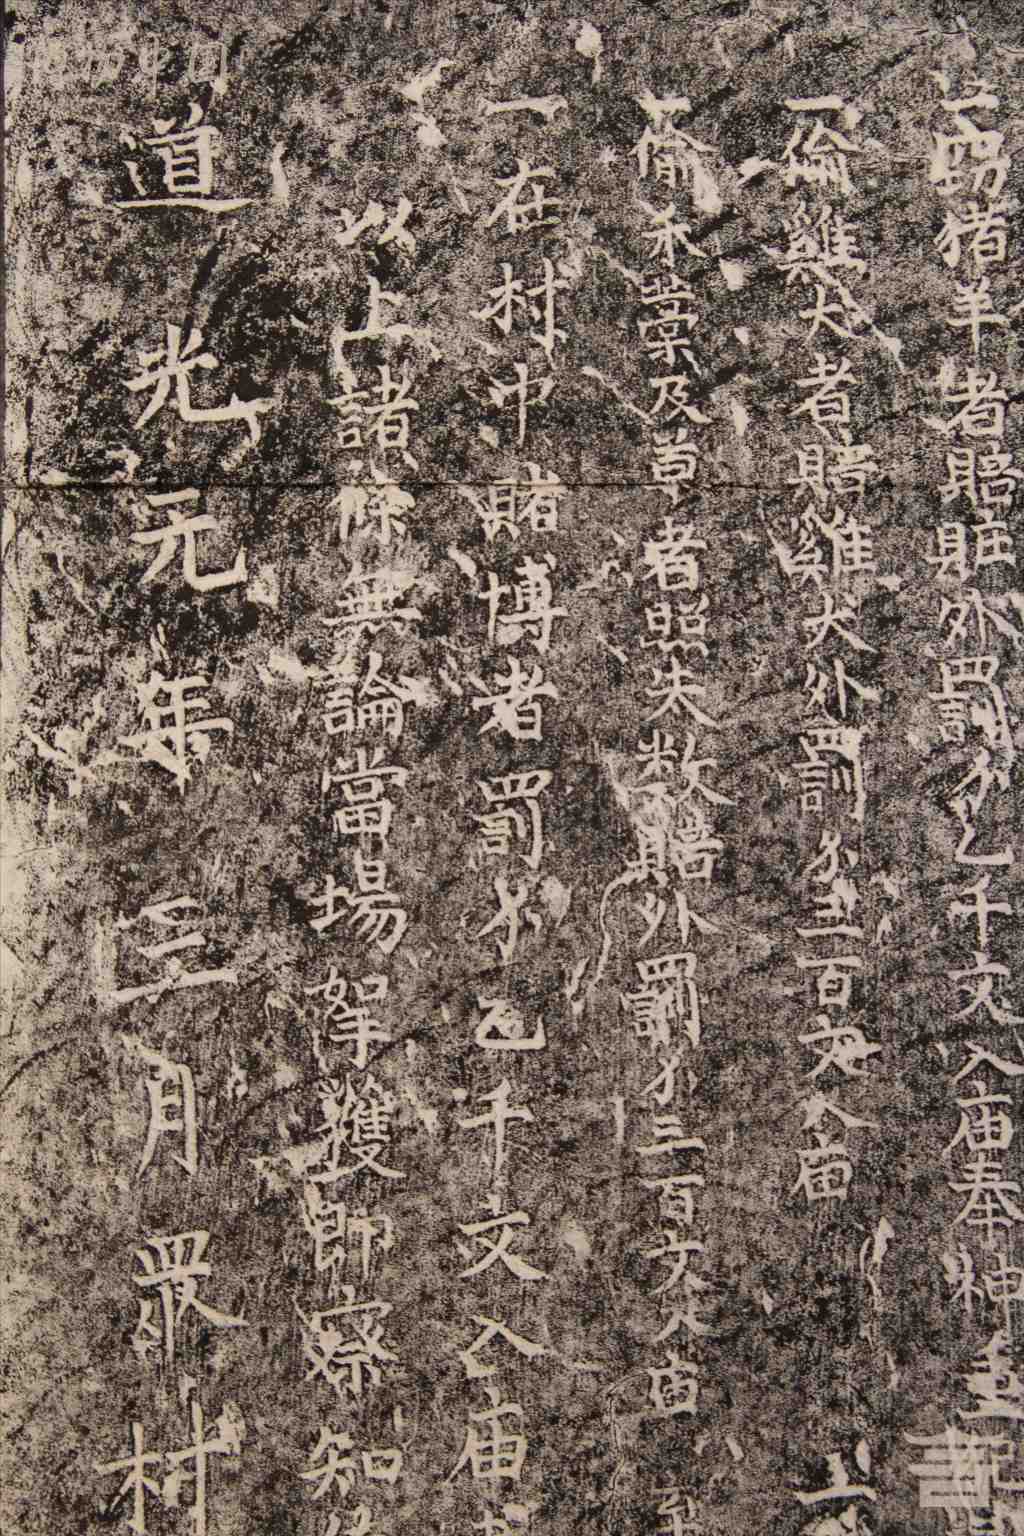 一窃猪羊者賠赃外罰乄乙千文入庙奉神
一偷雞犬者賠雞犬外罰乄五百文入庙
一偷禾藁及草者照失数賠外罰乄三百文入庙
一在村中賭博者罰乄乙千文入庙
以上諸條無論當場拏獲即察知
道光元年三月眾村